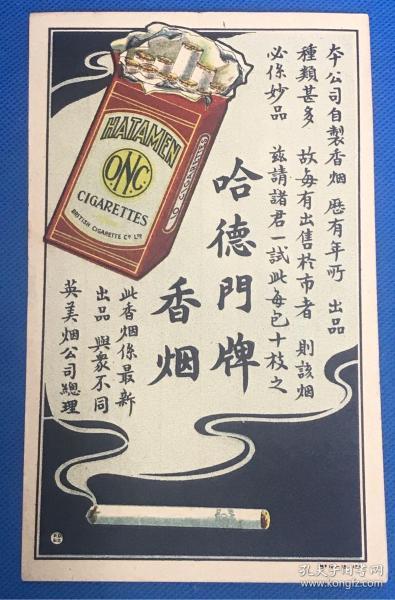 本公司自製香烟 歷有年所 出品
種類甚多 故每有出售於市者 則該烟
必係妙品 茲請諸君一試此每包十枝之
哈德門牌
香烟
此香烟係最新
出品 與衆不同
英美烟公司總理
HATAMEN
O.N.C.
CIGARETTES
BRITISH CIGARETTE CO LTD
孔夫子旧书网
www.kongfz.com